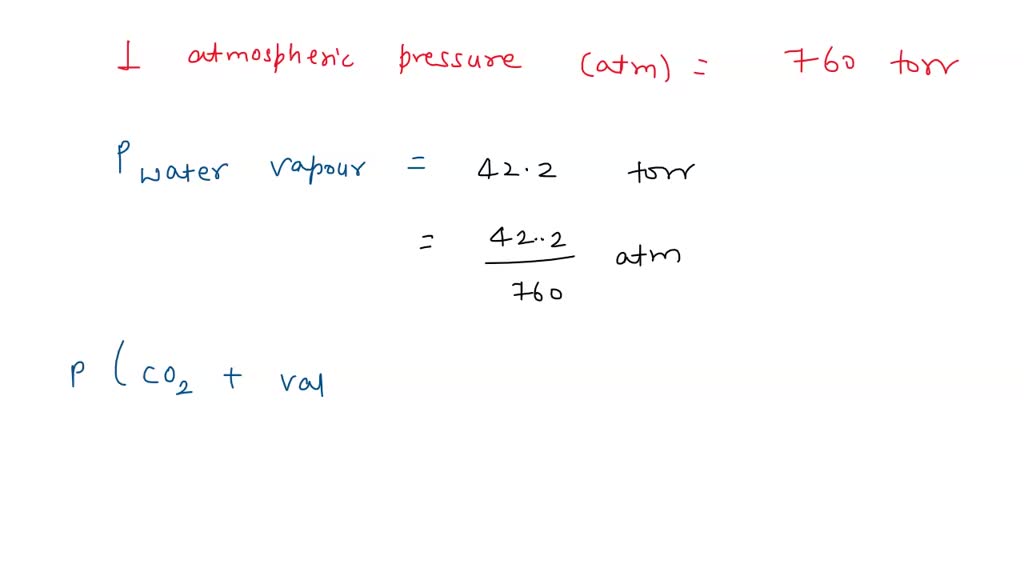 1 atmospheric pressure (atm) = 760 torr
P water vapour = 42.2 torr
= 42..2 / 760 atm
P (CO2 + vap